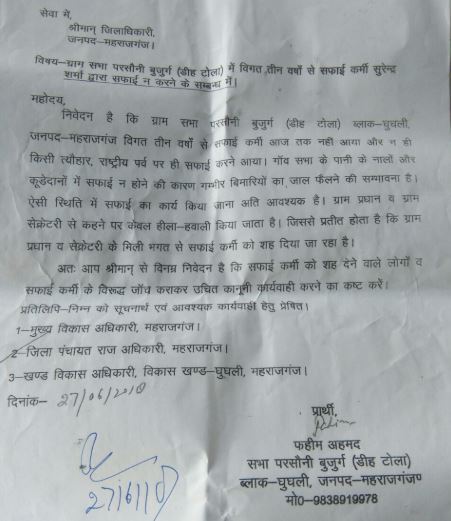 सेवा में,
श्रीमान् जिलाधिकारी,
जनपद–महराजगंज।
विषय–ग्राम सभा परसौनी बुजुर्ग (डीह टोला) में विगत तीन वर्षो से सफाई कर्मी सुरेन्द्र
शर्मा द्वारा सफाई न करने के सम्बन्ध में।
महोदय,
निवेदन है कि ग्राम सभा परसौनी बुजुर्ग (डीह टोला) ब्लाक–घुघली,
जनपद–महराजगंज विगत तीन वर्षो से सफाई कर्मी आज तक नही आया और न ही
किसी त्यौहार, राष्ट्रीय पर्व पर ही सफाई करने आया। गॉव सभा के पानी के नालों और
कूडेदानों में सफाई न होने की कारण गम्भीर बिमारियों का जाल फैलने की सम्भावना है।
ऐसी स्थिति में सफाई का कार्य किया जाना अति आवश्यक है। ग्राम प्रधान व ग्राम
सेक्रेटरी से कहने पर केवल हीला–हवाली किया जाता है। जिससे प्रतीत होता है कि ग्राम
प्रधान व सेक्रेटरी के मिली भगत से सफाई कर्मी को शह दिया जा रहा है।
अतः आप श्रीमान् से विनम्र निवेदन है कि सफाई कर्मी को शह देने वाले लोगों व
सफाई कर्मी के विरूद्ध जॉच कराकर उचित कानूनी कार्यवाही करने का कष्ट करें।
प्रतिलिपि–निम्न को सूचनार्थ एवं आवश्यक कार्यवाही हेतु प्रेषित।
1–मुख्य विकास अधिकारी, महराजगंज।
2–जिला पंचायत राज अधिकारी, महराजगंज।
3–खण्ड विकास अधिकारी, विकास खण्ड–घुघली, महराजगंज।
दिनांक– 27/06/2018
प्रार्थी,
फहीम अहमद
सभा परसौनी बुजुर्ग (डीह टोला)
ब्लाक–घुघली, जनपद–महराजगंज०
मो0–9838919978